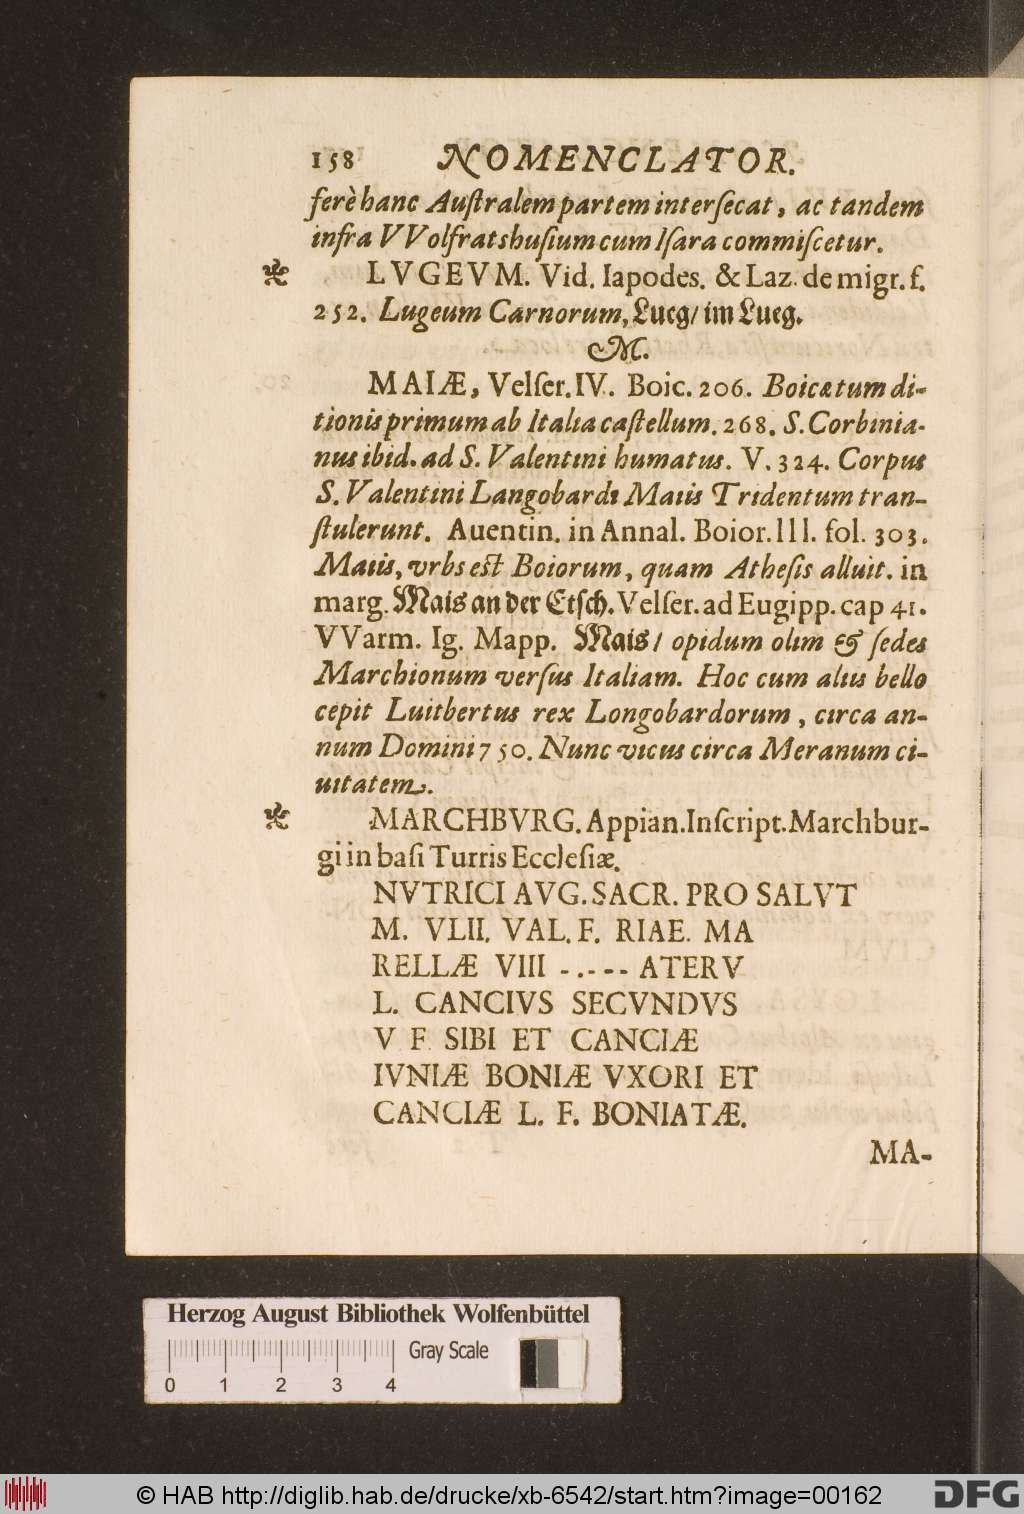 158 NOMENCLATOR.
ferè hanc Auſtralem partem interſecat, ac tandem
infra VVolfratshuſium cum Iſara commiſcetur.
LVGEVM. Vid. Iapodes. & Laz. de migr. f.
252. Lugeum Carnorum, Lueg/ im Lueg.
M.
MAIÆ, Velſer. IV. Boic. 206. Boicatum di-
tionis primum ab Italia caſtellum. 268. S. Corbinia-
nus ibid. ad S. Valentini humatus. V. 324. Corpus
S. Valentini Langobardi Maiis Tridentum tran-
ſtulerunt. Auentin. in Annal. Boior. lll. fol. 303.
Maiis, vrbs eſt Boiorum, quam Atheſis alluit. in
marg. Mais an der Etſch. Velſer. ad Eugipp. cap 41.
VVarm. Ig. Mapp. Mais/ opidum olim & ſedes
Marchionum verſus Italiam. Hoc cum aliis bello
cepit Luitbertus rex Longobardorum, circa an-
num Domini 750. Nunc vicus circa Meranum ci-
uitatem.
MARCHBVRG. Appian. Inſcript. Marchbur-
gi in baſi Turris Eccleſiæ.
NVTRICI AVG. SACR. PRO SALVT
M. VLII. VAL. F. RIAE. MA
RELLÆ VIII -.--- ATERV
L. CANCIVS SECVNDVS
V F. SIBI ET CANCIÆ
IVNIÆ BONIÆ VXORI ET
CANCIÆ L. F. BONIATÆ.
MA-
Herzog August Bibliothek Wolfenbüttel
Gray Scale
0 1 2 3 4
© HAB http://diglib.hab.de/drucke/xb-6542/start.htm?image=00162
DFG